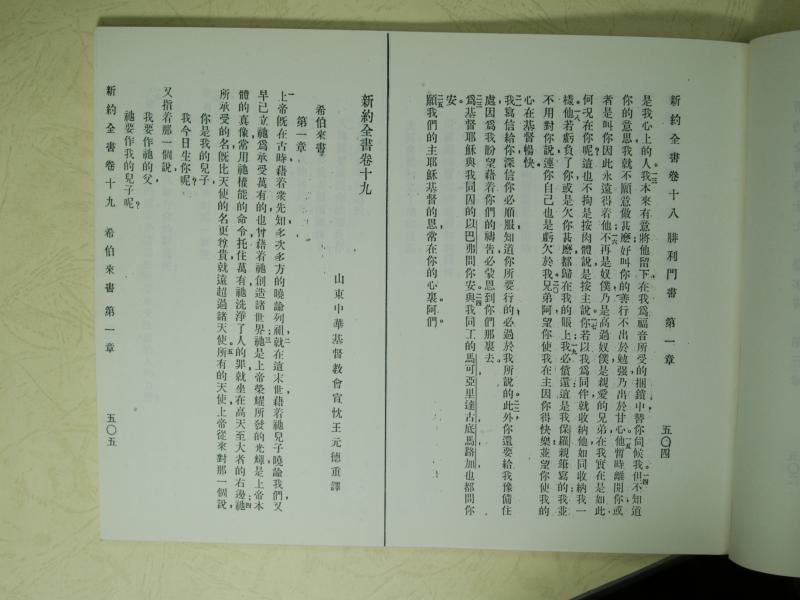 新約全書卷十八 腓利門書 第一章 五〇四
是我心上的人我本來有意將他留下在我爲福音所受的捆鎖中替你伺候我但不知道
你的意思我就不願意做甚麽好叫你的善行不出於勉強乃出於甘心他暫時離開你或
者是叫你因此永遠得着他不再是奴僕乃是高過奴僕是親愛的兄弟在我實在是如此
何况在你呢這也不拘是按肉體說是按主說你若以我爲同伴就收納他如同收納我一
樣他若虧負了你或是欠你甚麽都歸在我的賬上我必償還這是我保羅親筆寫的我並
不用對你說連你自己也是虧欠於我兄弟阿望你使我在主因你得快樂並望你使我的
心在基督暢快
我寫信給你深信你必順服知道你所要行的必過於我所說的此外你還要給我豫備住
處因爲我盼望藉着你們的禱告必蒙恩到你們那裏去
爲基督耶穌與我同囚的以巴弗問你安與我同工的馬可亞里達古底馬路加也都問你
安
願我們的主耶穌基督的恩常在你的心裏阿們
新約全書卷十九
山東中華基督教會宣忱王元德重譯
希伯來書
第一章
上帝旣在古時藉着衆先知多次多方的曉諭列祖就在這末世藉着祂兒子曉諭我們又
早已立祂爲承受萬有的也曾藉着祂創造諸世界祂是上帝榮耀所發的光輝是上帝本
體的真像常用祂權能的命令托住萬有祂洗淨了人的罪就坐在高天至大者的右邊祂
所承受的名旣比天使的名更尊貴就遠超過諸天使所有的天使上帝從來對那一個說
你是我的兒子
我今日生你呢
又指着那一個說
我要作祂的父
祂要作我的兒子呢
新約全書卷十九 希伯來書 第一章 五〇五